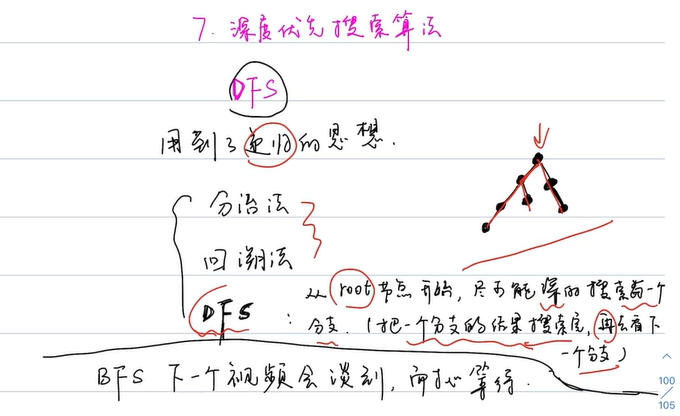 7. 深度优先搜索算法
DFS
用到了递归的思想.
分治法
回溯法
DFS : 从root节点开始, 尽可能深的搜索每一个
分支. (把一个分支的结果搜索完, 再去看下
一个分支)
BFS 下一个视频会谈到, 敬请等待.
100
105